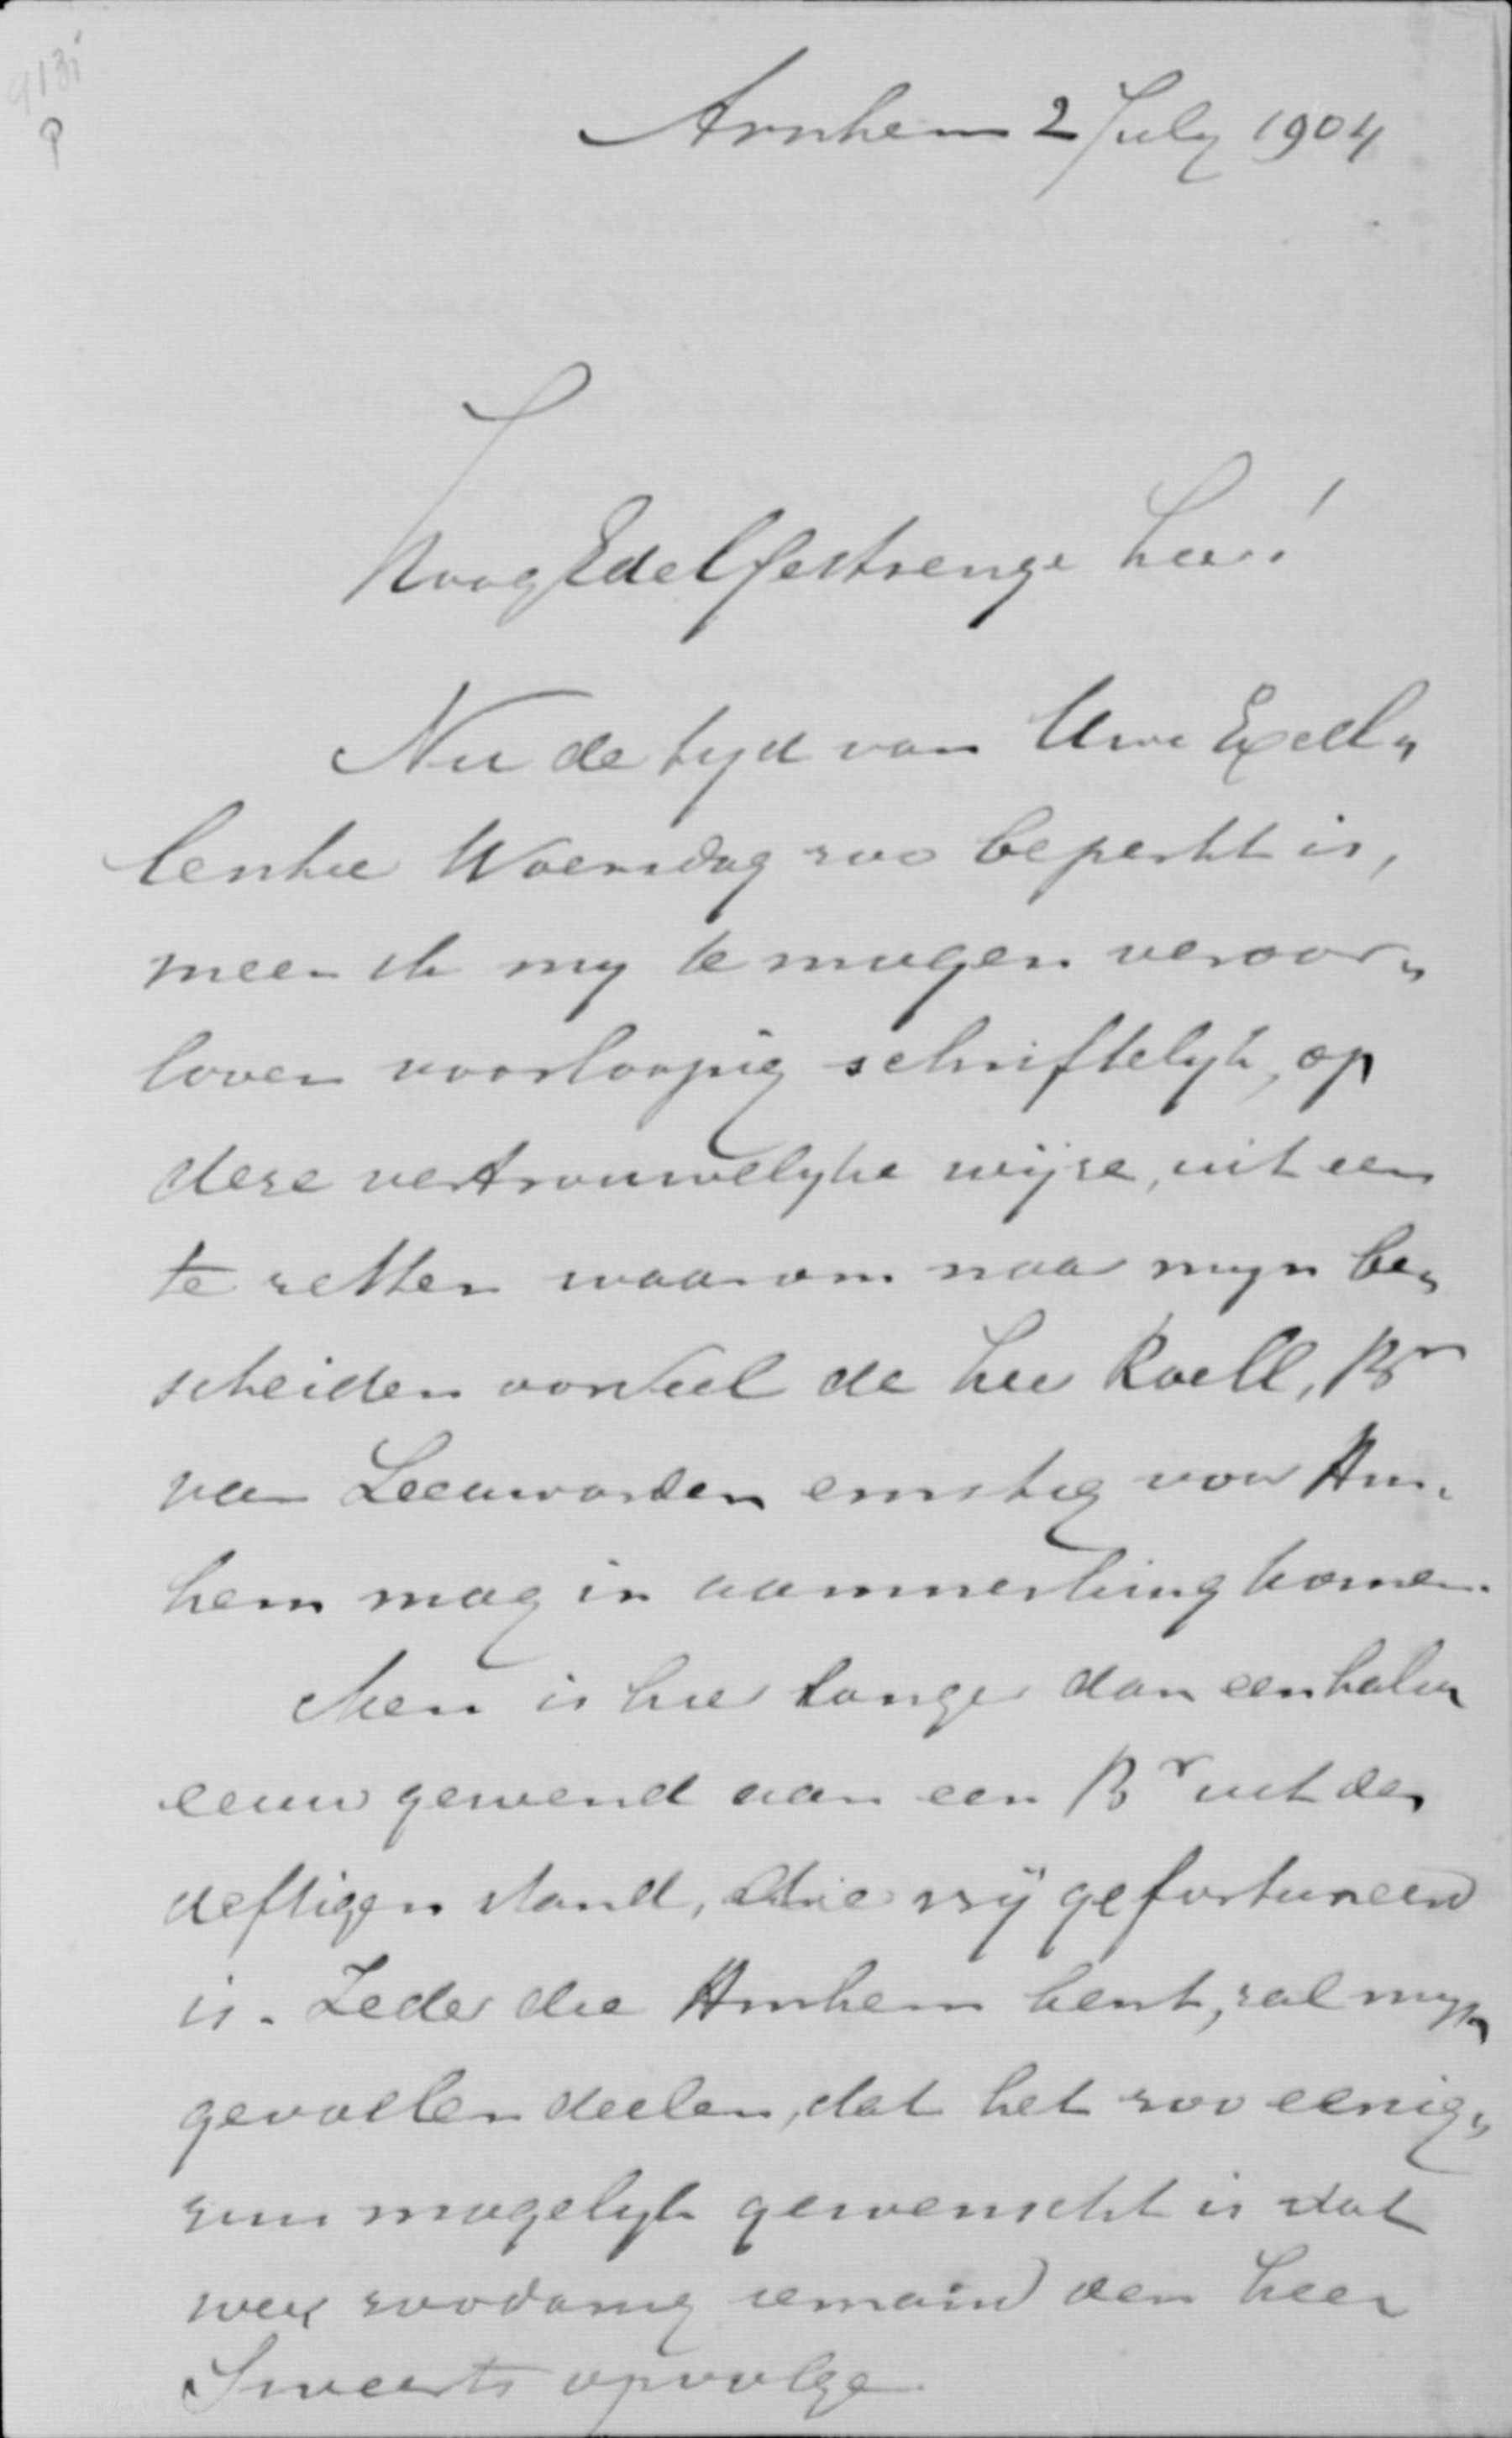 913i
P
Arnhem 2 July 1904
HoogEdelGestrenge Heer!
Nu de tyd van Uwe Excel„
lentie Woensdag zoo beperkt is,
meen ik my te mogen veroor„
loven voorloopig schriftelyk, op
deze vertrouwelyke wijze, uit een
te zetten waarom naar myn be„
scheiden oordeel de heer Roëll, Br
van Leeuwarden ernstig voor Arn„
hem mag in aanmerking komen.
Men is hier langer dan een halve
eeuw gewend aan een Br uit den
deftigen stand, die vrij gefortuneerd
is. Ieder die Arnhem kent, zal myn
gevoelen deelen, dat het zoo eenig„
zins mogelyk gewenscht is dat
weer zoodanig iemand den heer
Sweerts opvolge.